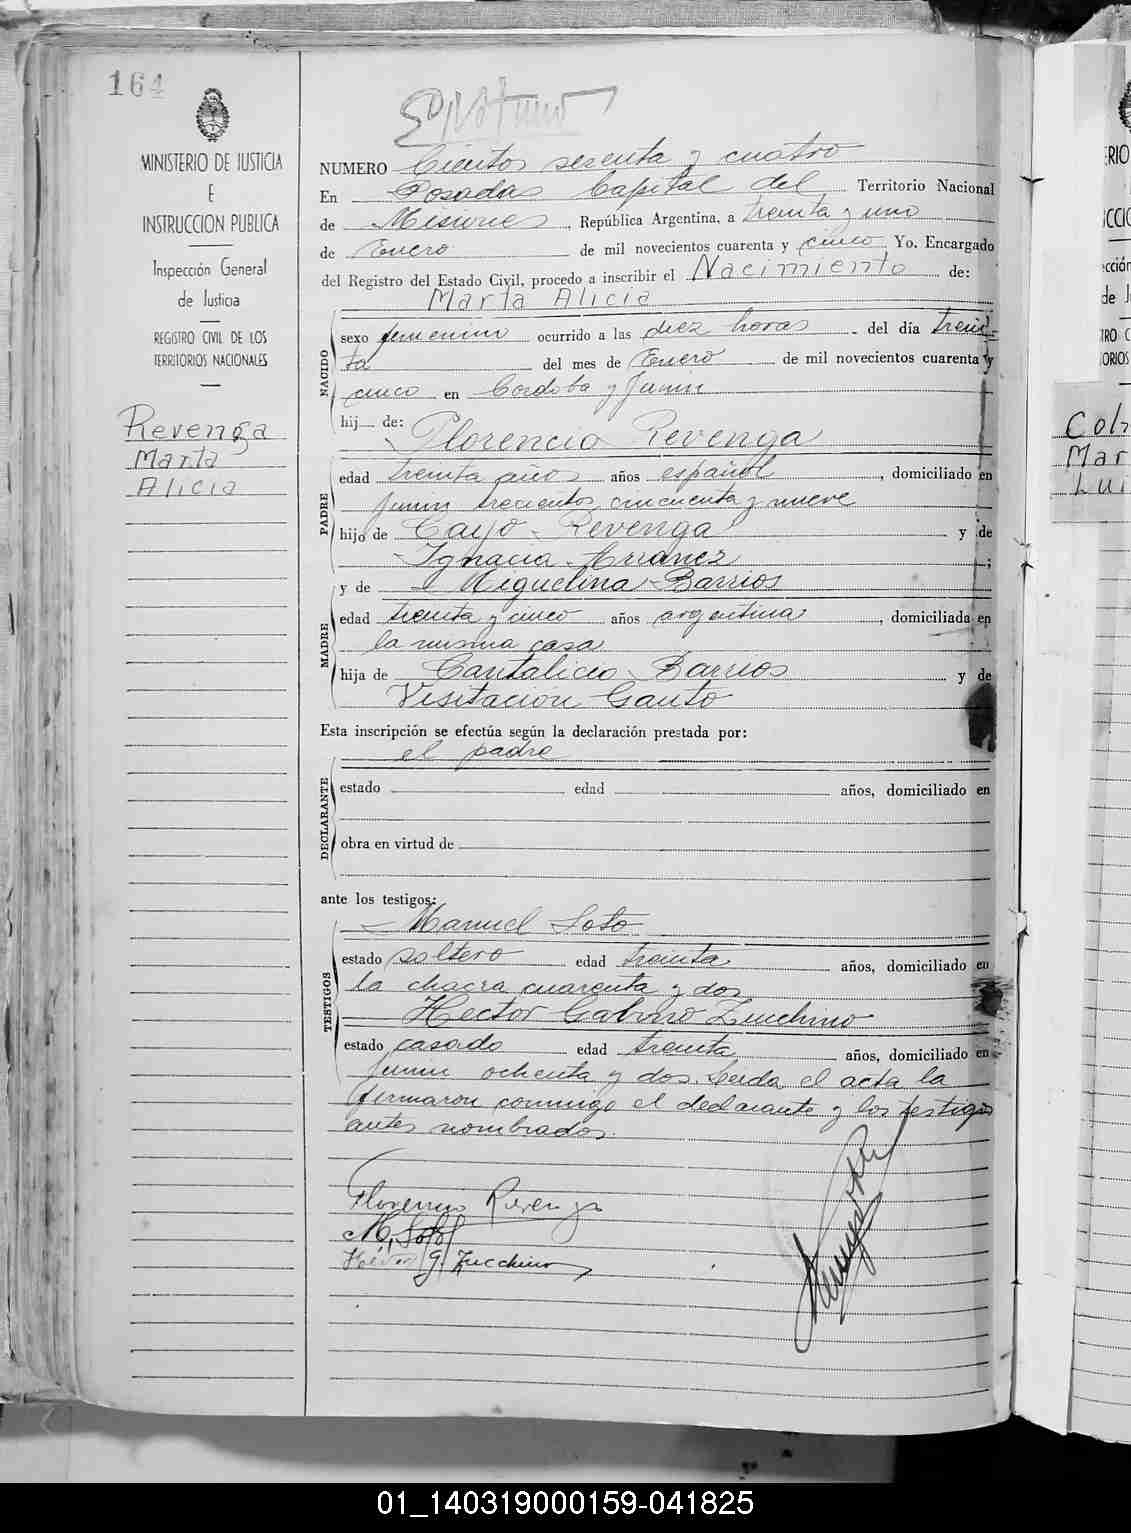 164
MINISTERIO DE JUSTICIA
E
INSTRUCCION PUBLICA
Inspección General
de Justicia
REGISTRO CIVIL DE LOS
TERRITORIOS NACIONALES
Revenga
Marta
Alicia
NUMERO Ciento sesenta y cuatro
En Posadas Capital del Territorio Nacional
de Misiones, República Argentina, a treinta y uno
de Enero de mil novecientos cuarenta y cinco Yo. Encargado
del Registro del Estado Civil, procedo a inscribir el Nacimiento de:
Marta Alicia
NACIDO
sexo femenino ocurrido a las diez horas del día trein-
ta del mes de Enero de mil novecientos cuarenta y
cinco en Cordoba y Junin
hij de:
Florencio Revenga
PADRE
edad treinta años años español, domiciliado en
Junin trecientos cincuenta y nueve
hijo de Cayo Revenga y de
Ignacia Arranez;
y de Miguelina Barrios
MADRE
edad treinta y cinco años argentina, domiciliada en
la misma casa
hija de Cantalicio Barrios y de
Visitación Gauto
Esta inscripción se efectúa según la declaración prestada por:
el padre
DECLARANTE
estado edad años, domiciliado en
obra en virtud de
ante los testigos:
Manuel Soto
TESTIGOS
estado soltero edad treinta años, domiciliado en
la chacra cuarenta y dos
Hector Gabino Zucchino
estado casado edad treinta años, domiciliado en
Junin ochenta y dos. Leida el acta la
firmaron conmigo el declarante y los testigos
antes nombrados.
Florencio Revenga
M. Soto
Héctor G. Zucchino
Colm
Mar
Lui
01_140319000159-041825